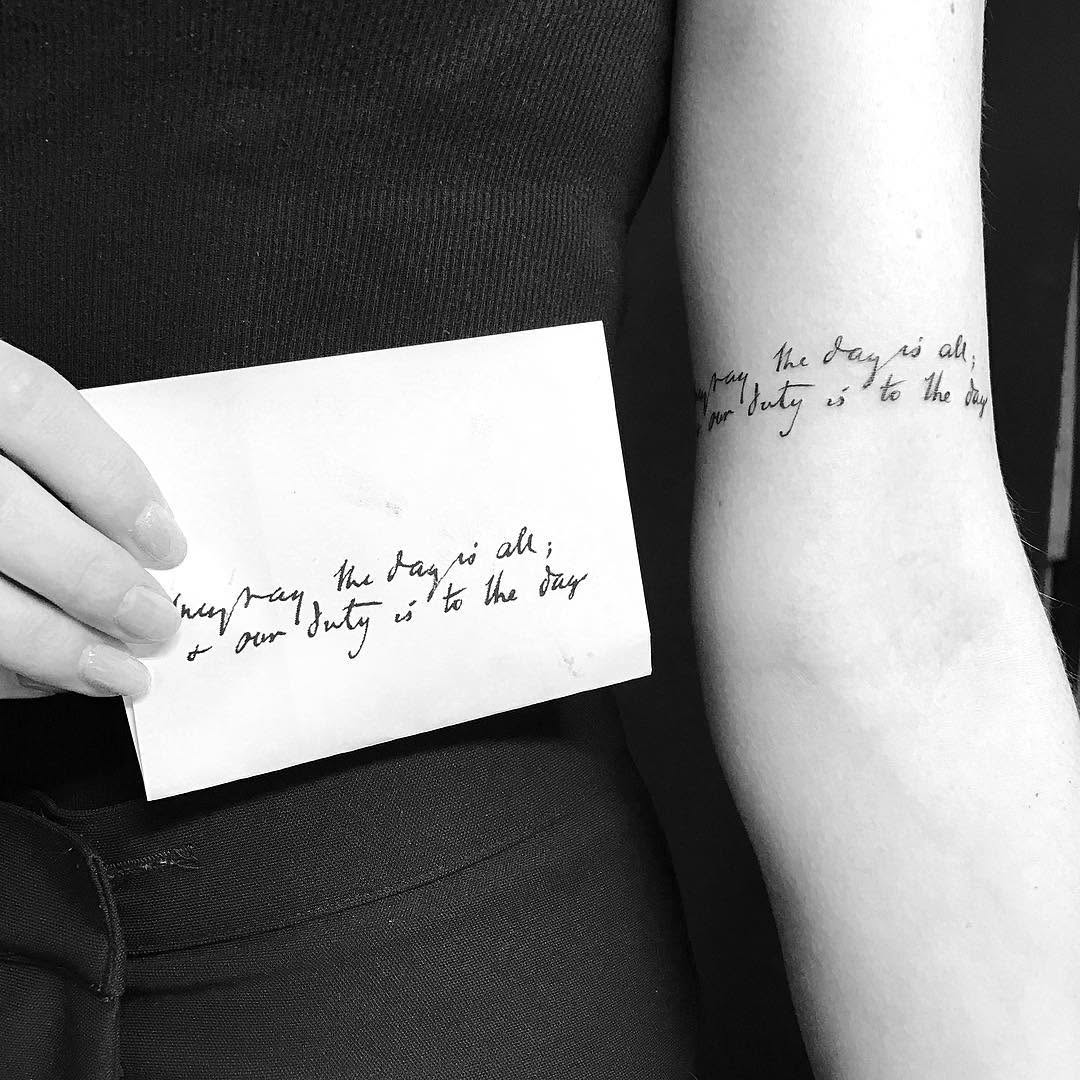 the day is all;
+ our duty is to the day
the day is all;
our duty is to the day